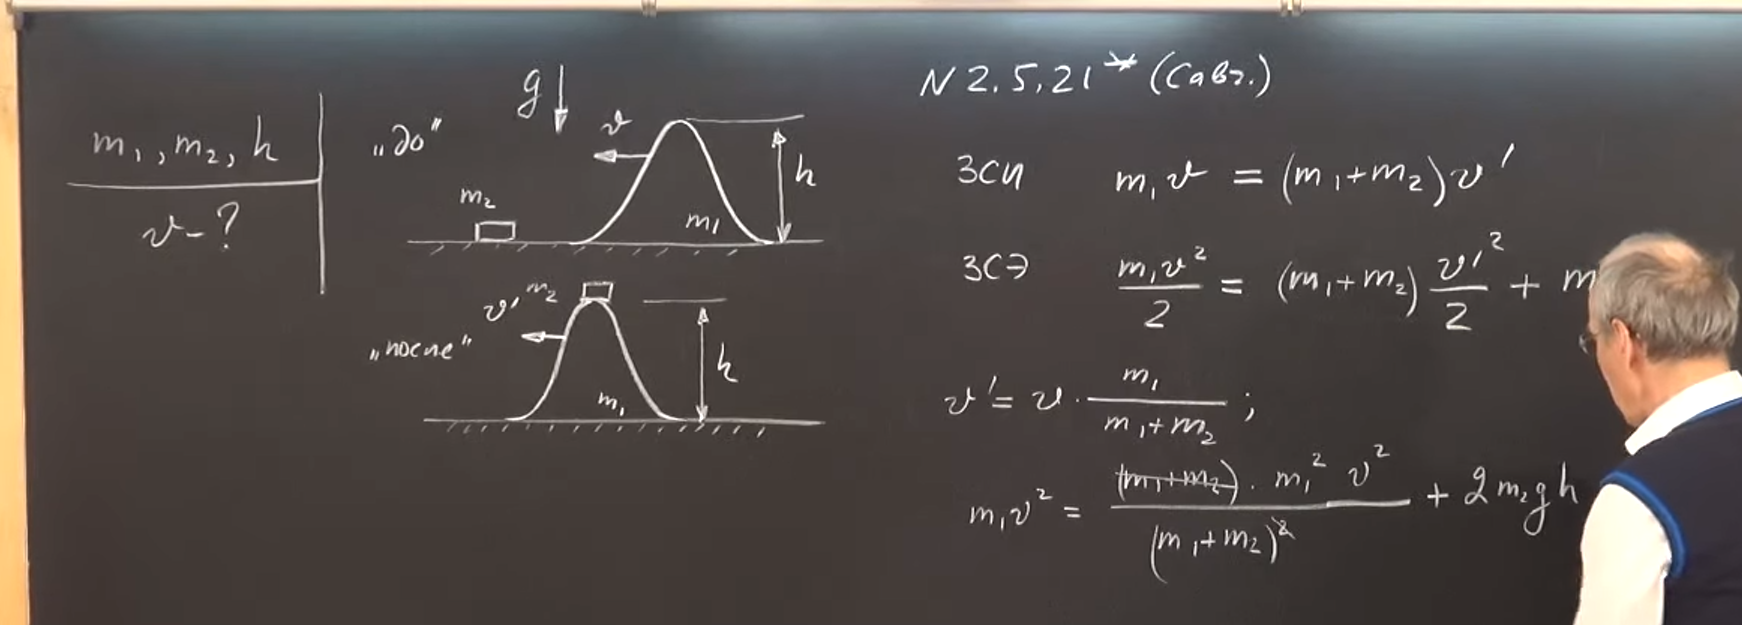 m₁, m₂, h
v - ?
„до"
g
v
h
m₂
m₁
„после"
v' m₂
h
m₁
N 2.5.21* (Савч.)
ЗСИ m₁v = (m₁+m₂)v'
ЗСЭ m₁v²/2 = (m₁+m₂) v'²/2 + m
v' = v · m₁/(m₁+m₂) ;
m₁v² = (m₁+m₂) · m₁² v²/(m₁+m₂)² + 2m₂gh